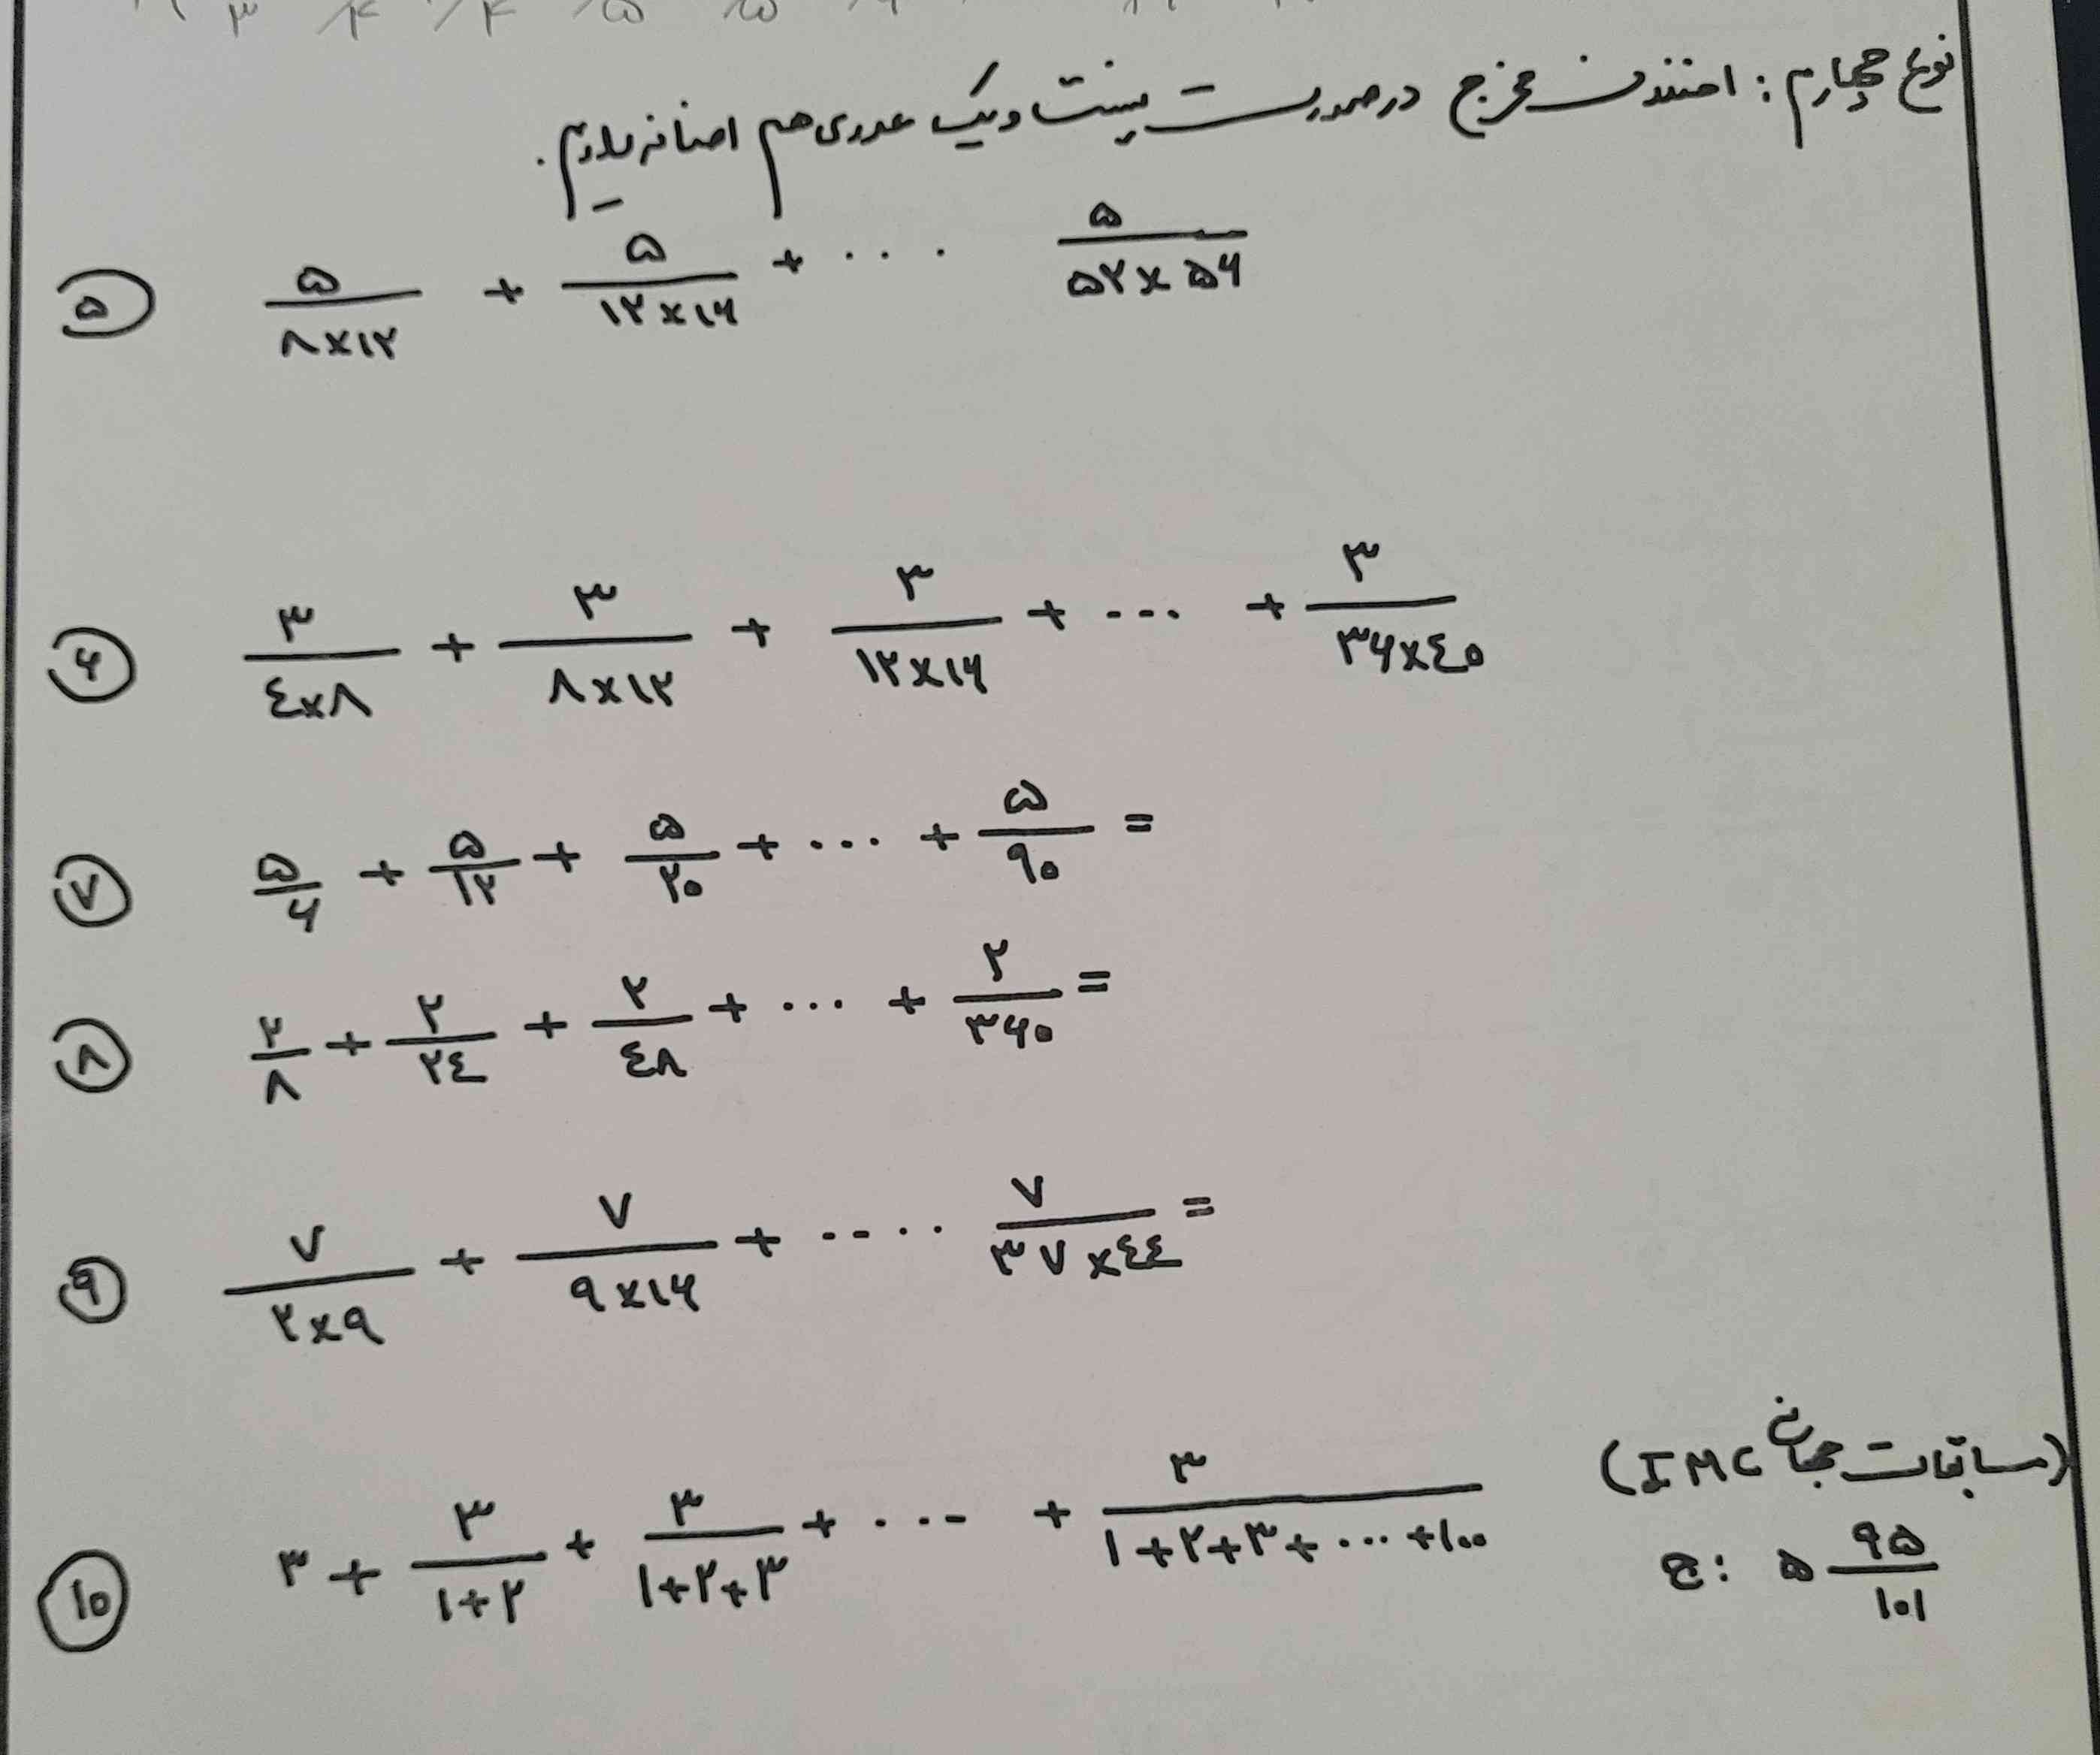 نوع چهارم : اختلاف مخرج در صورت نیست و یک عددی هم اضافه داریم .
۵ ۵/۸×۱۲ + ۵/۱۲×۱۶ + .... ۵/۵۲×۵۶
۶ ۳/٤×۸ + ۳/۸×۱۲ + ۳/۱۲×۱۶ + ... + ۳/۳۶×٤۰
۷ ۵/۶ + ۵/۱۲ + ۵/۲۰ + ... + ۵/۹۰ =
۸ ۲/۸ + ۲/۲٤ + ۲/٤۸ + ... + ۲/۳۶۰ =
۹ ۷/۲×۹ + ۷/۹×۱۶ + .... ۷/۳۷×٤٤ =
(مسابقات جهانی IMC)
۱۰ ۳ + ۳/۱+۲ + ۳/۱+۲+۳ + ... + ۳/۱+۲+۳+...+۱۰۰
ج : ۵ ۹۵/۱۰۱